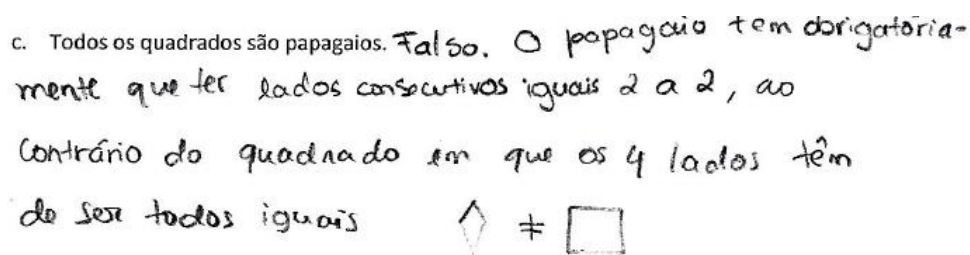 c. Todos os quadrados são papagaios. Falso. O papagaio tem obrigatória-
mente que ter lados consecutivos iguais 2 a 2, ao
contrário do quadrado em que os 4 lados têm
de ser todos iguais ≠